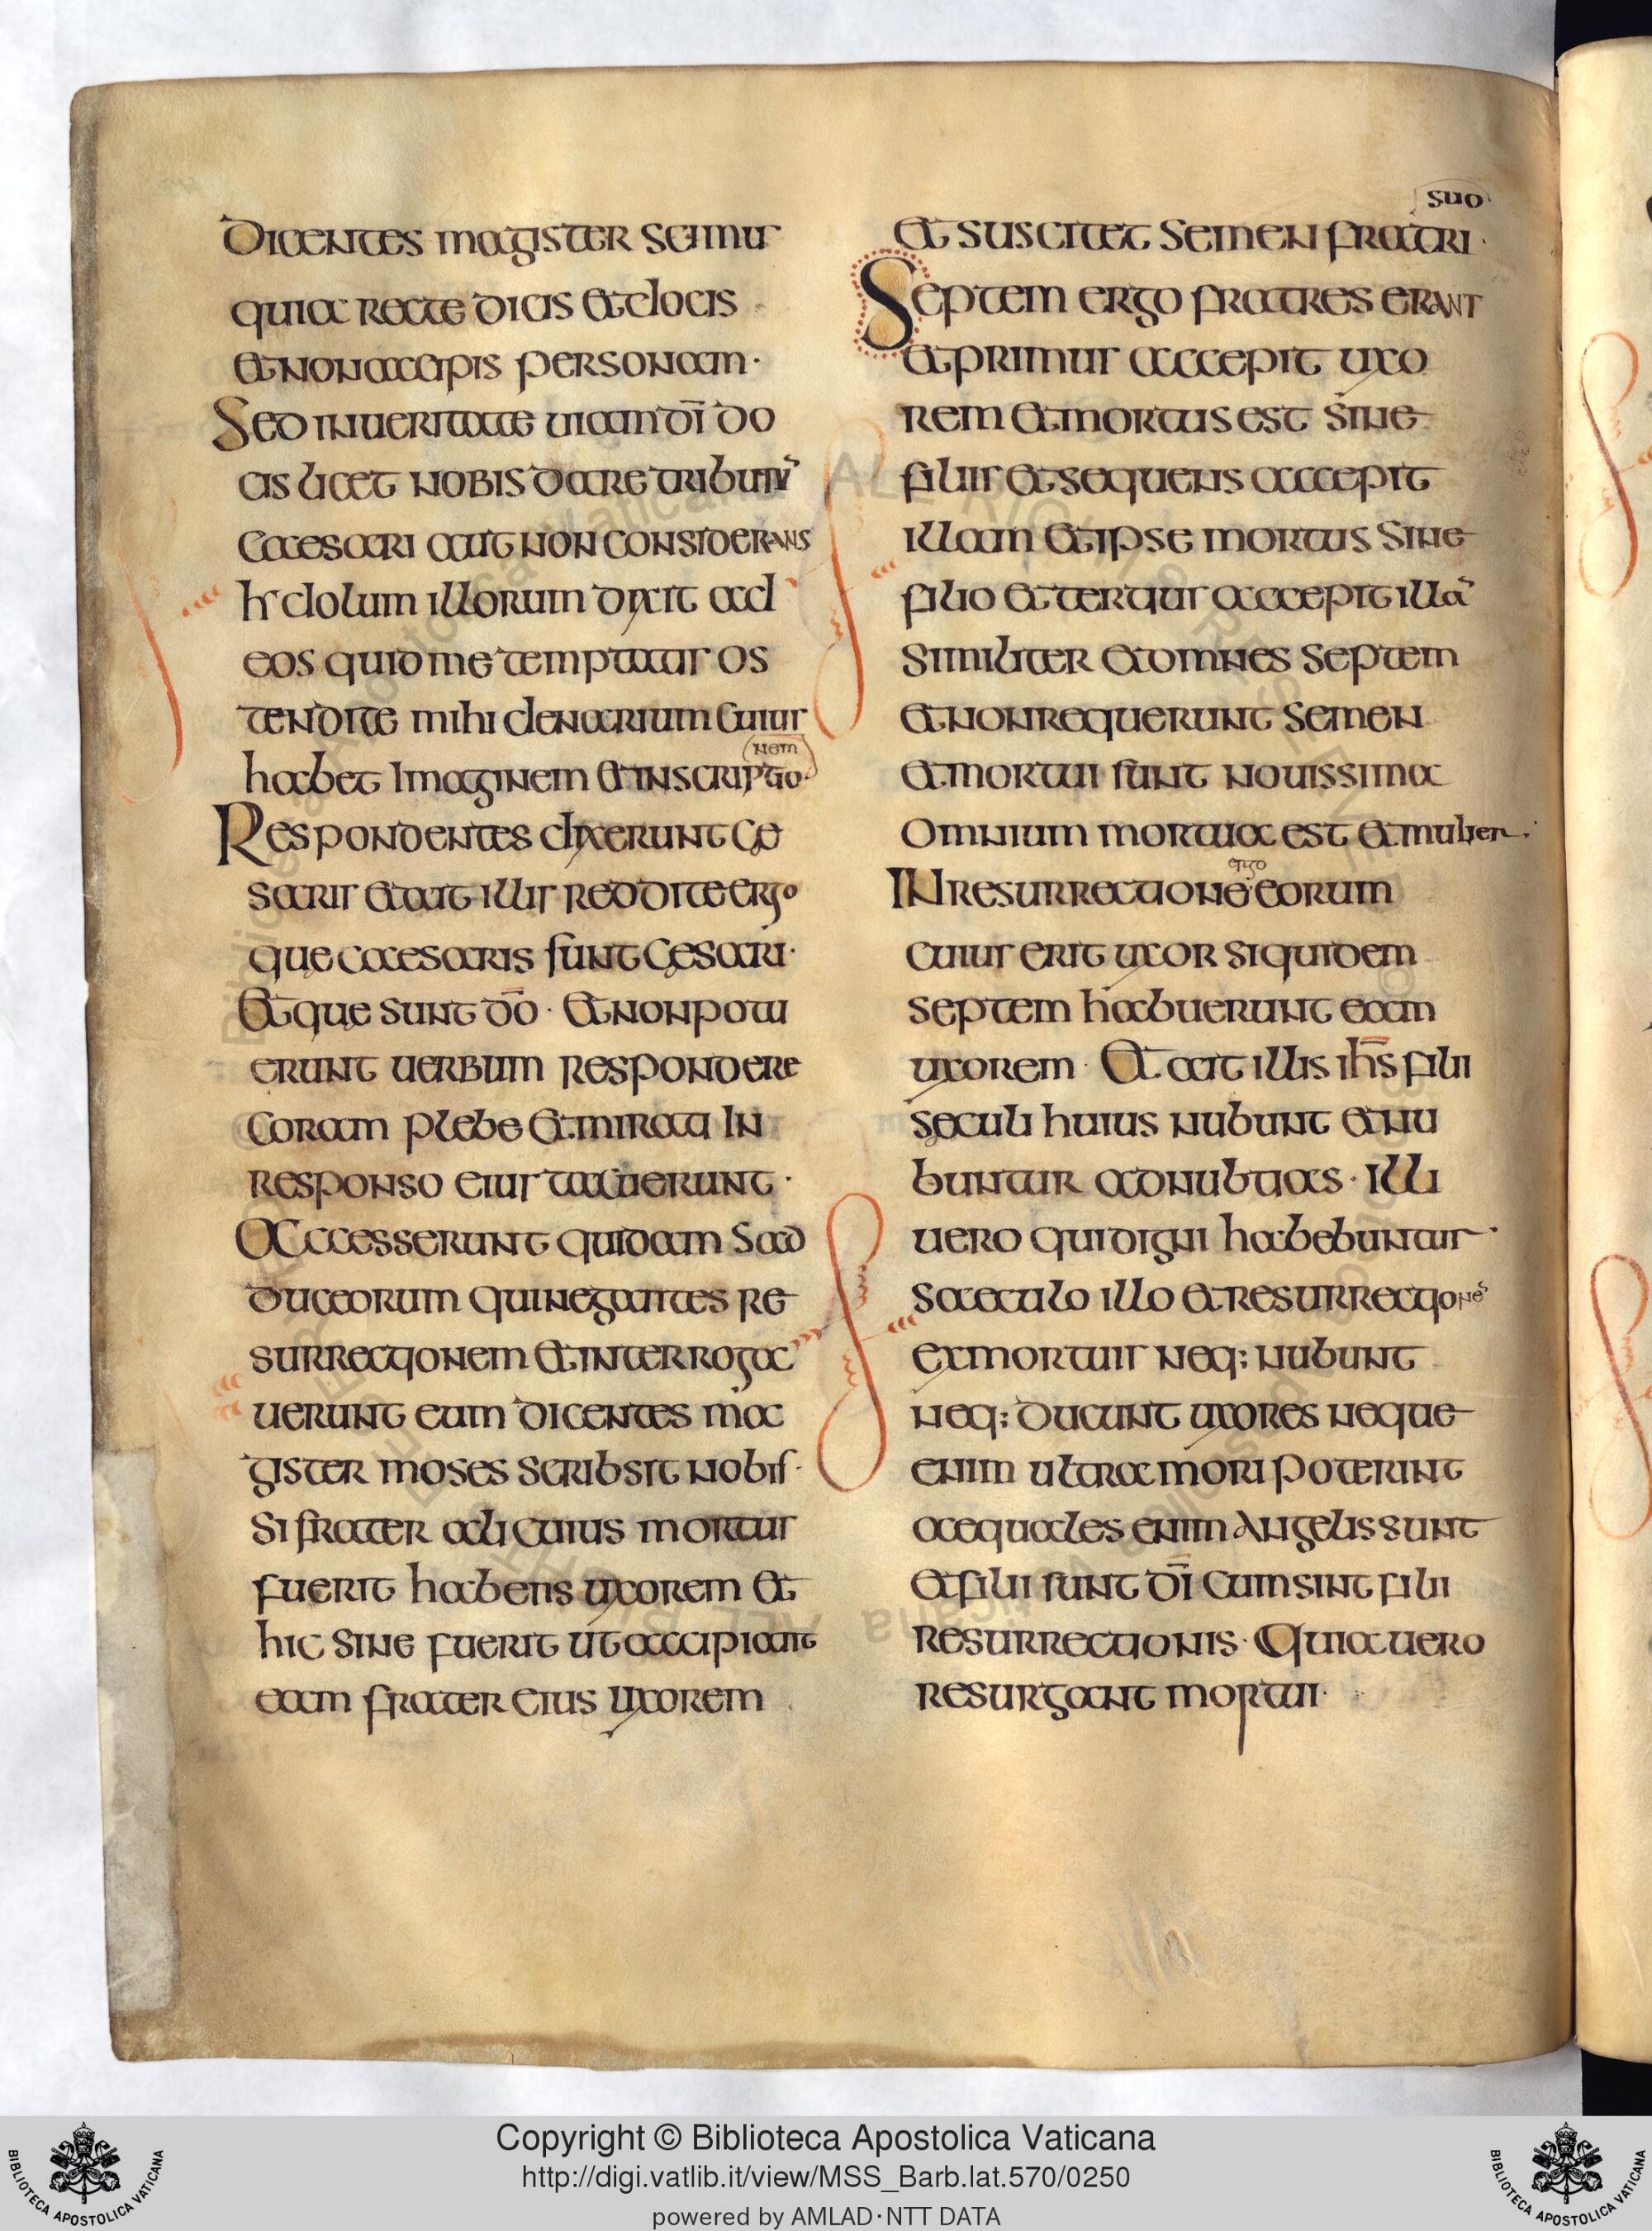 dicentes magister scimus
quia recte dicis et docis
et non accipis personam·
Sed in ueritate uiam dī do
cis licet nobis dare tributū
caesari aut non considerans
hr dolum illorum dixit ad
eos quid me temptatis os
tendite mihi denarium cuius
nem
habet imaginem et inscriptio
Respondentes dixerunt ce
saris et ait illis reddite ergo
que caesaris sunt cesari·
Et que sunt dō· Et non potu
erunt uerbum respondere
coram plebe et mirati in
responso eius tacuerunt·
Accesserunt quidam sad
duceorum qui negantes re
surrectionem et interroga
uerunt eum dicentes ma
gister moses scribsit nobis·
si frater alicuius mortus
fuerit habens uxorem et
hic sine fuerit ut accipiant
eam frater eius uxorem
suo·
et suscitet semen fratri·
Septem ergo fratres erant
et primus accepit uxo
rem et mortus est sine
filiis et sequens accepit
illam et ipse mortus sine
filio et tertius accepit illā
similiter et omnes septem
et non requerunt semen
et mortui sunt nouissima
omnium mortua est et mulier·
ergo
In resurrectione eorum
cuius erit uxor siquidem
septem habuerunt eam
uxorem· Et ait illis ihs̄ filii
seculi huius nubunt et nu
buntur ad nubtias· Illi
uero qui digni habebuntur·
saeculo illo et resurrectionē
ex mortuis neq: nubunt
neq: ducunt uxores neque
enim ultra mori poterint
aequales enim angelis sunt
et filii sunt dī cum sint filii
resurrectionis· Quia uero
resurgant mortui·
Copyright © Biblioteca Apostolica Vaticana
http://digi.vatlib.it/view/MSS_Barb.lat.570/0250
powered by AMLAD·NTT DATA
BIBLIOTECA APOSTOLICA VATICANA
BIBLIOTECA APOSTOLICA VATICANA